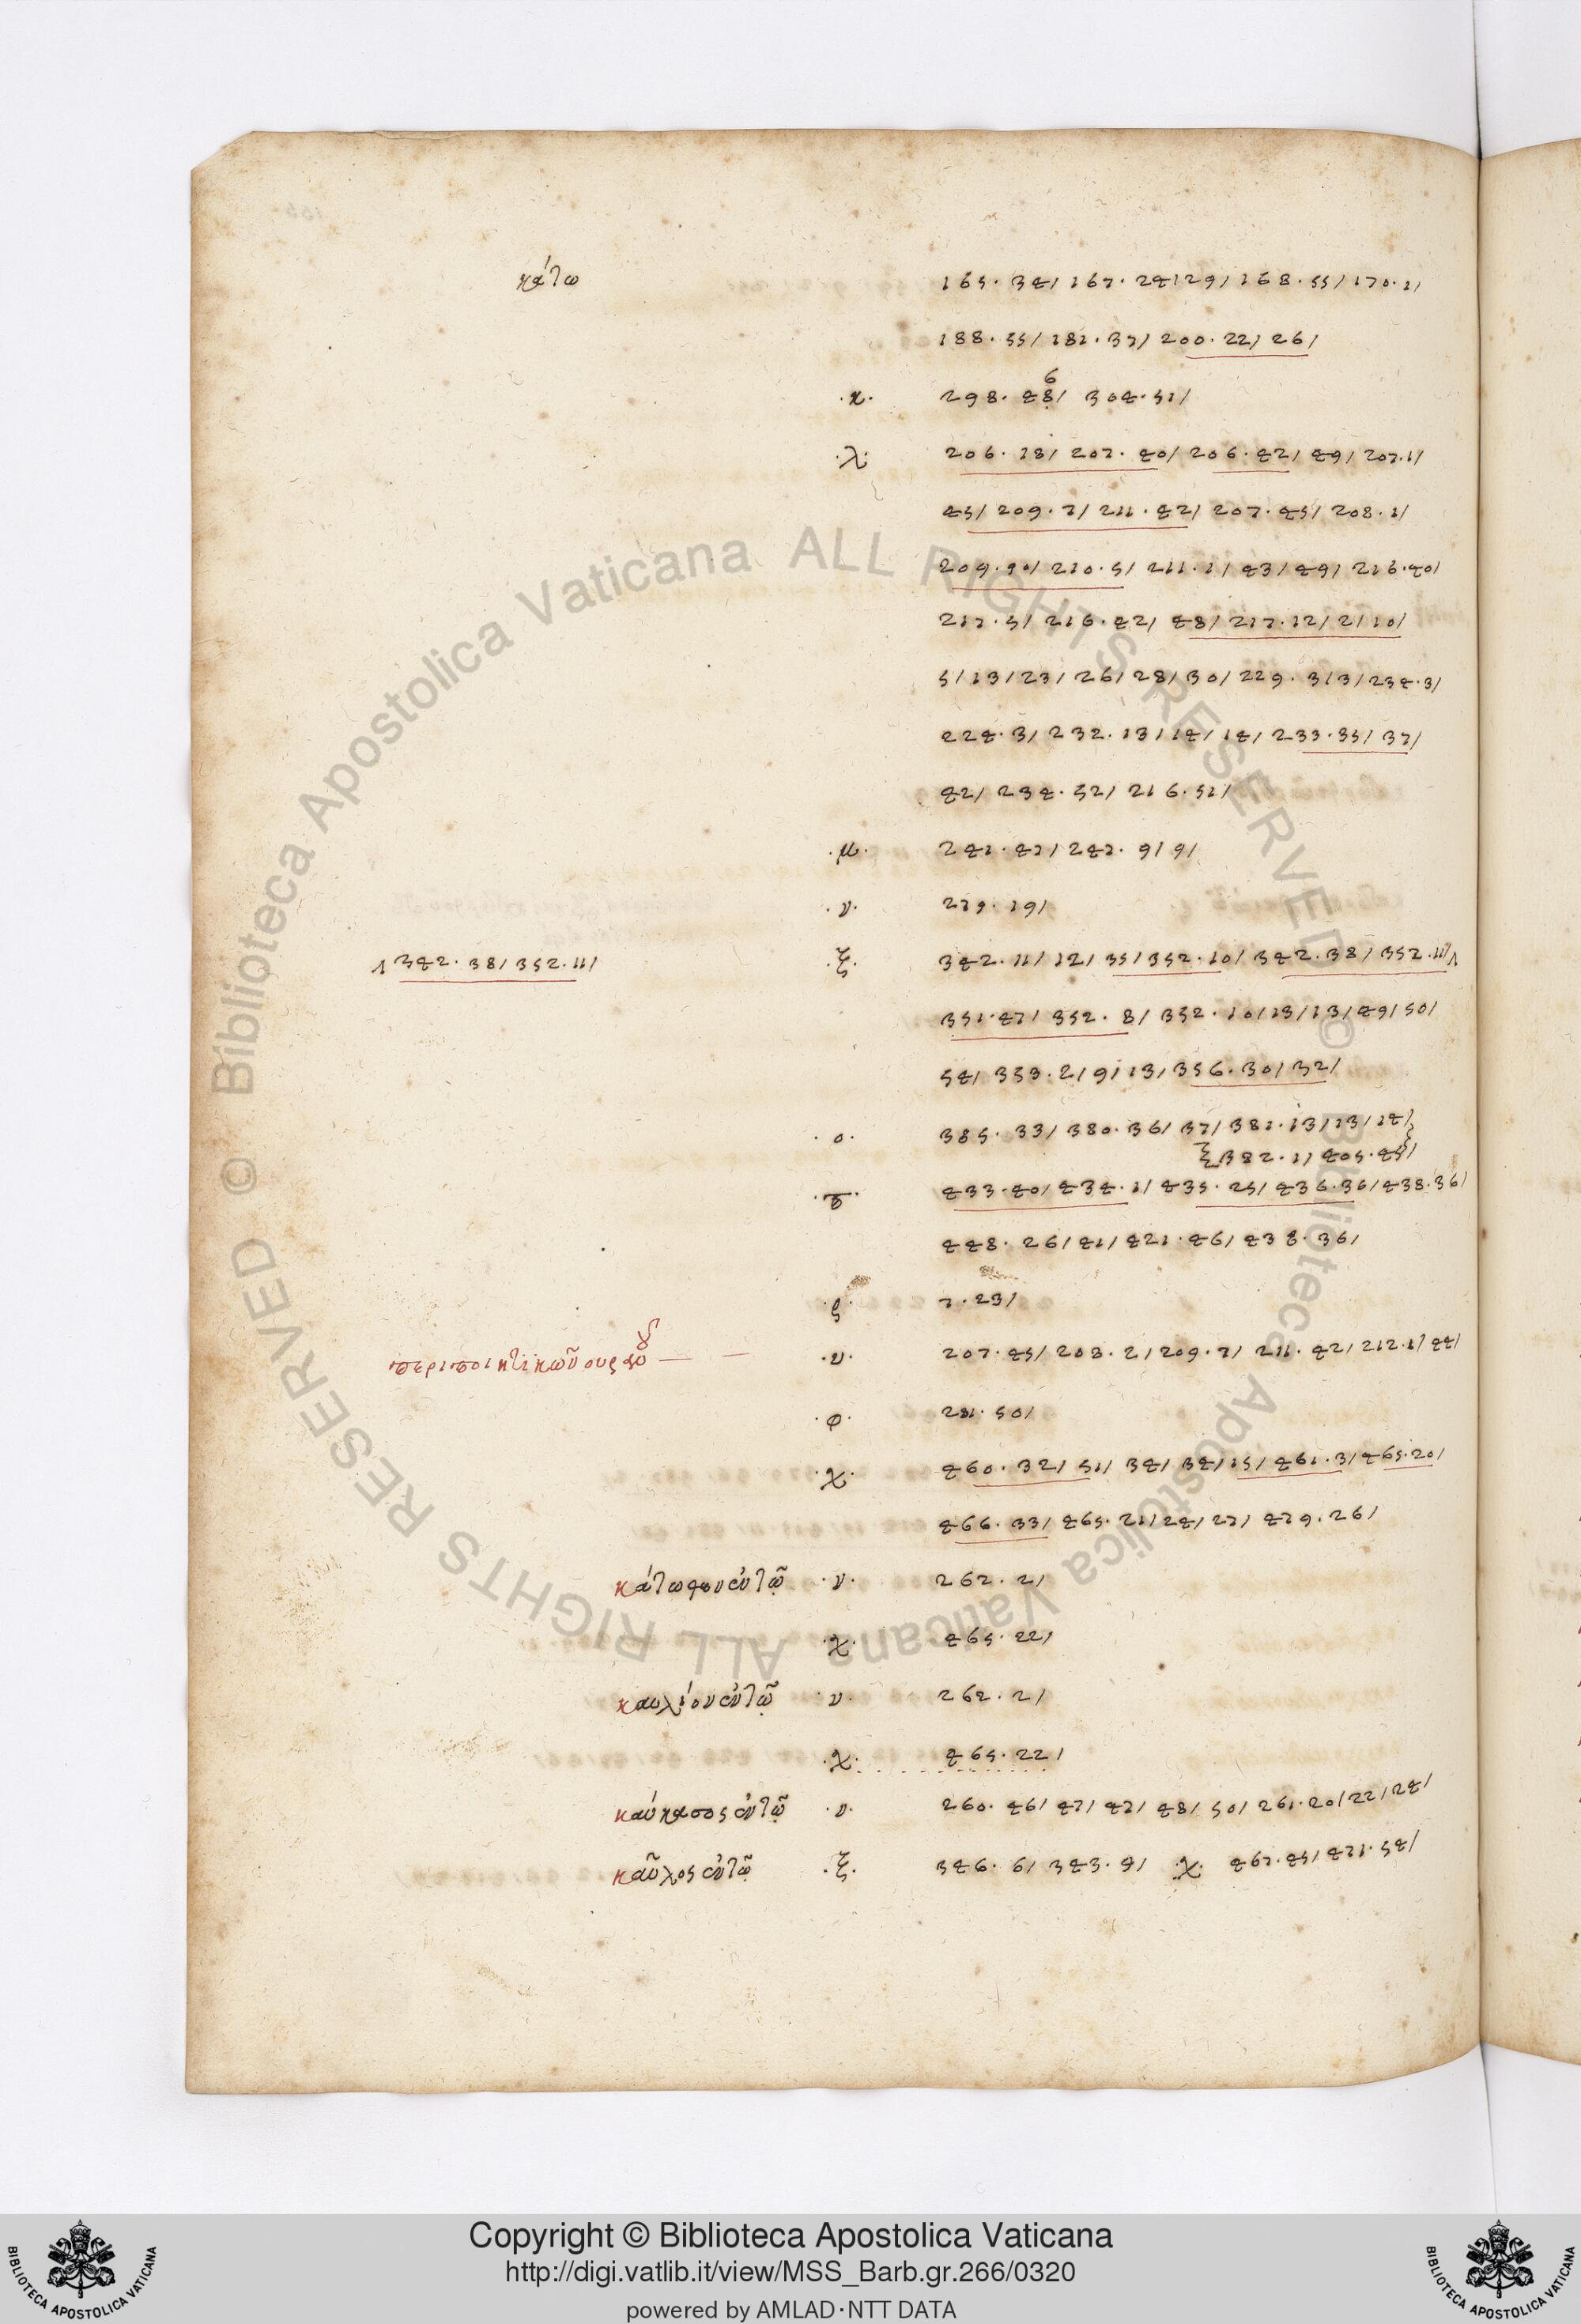 κάτω 165. 34/ 167. 24/29/ 168. 55/ 170. 1/
188. 55/ 181. 37/ 200. 22/ 26/
.κ. 298. 48/ 304. 51/
6
.λ. 206. 18/ 207. 40/ 206. 42/ 49/ 207. 1/
45/ 209. 7/ 211. 42/ 207. 45/ 208. 1/
209. 90/ 210. 5/ 211. 1/ 43/ 49/ 216. 40/
217. 5/ 216. 42/ 48/ 217. 12/ 2/ 10/
5/ 13/ 23/ 26/ 28/ 30/ 229. 3/3/ 234. 3/
224. 3/ 232. 13/ 14/ 14/ 233. 35/ 37/
42/ 234. 52/ 216. 51/
.μ. 241. 47/ 247. 9/ 9/
.ν. 279. 19/
342. 38/ 352. 11/ .ξ. 342. 11/ 12/ 35/ 352. 10/ 342. 38/ 352. 11/
351. 47/ 352. 8/ 352. 10/ 13/ 13/ 49/ 50/
54/ 353. 2/ 9/ 13/ 356. 30/ 32/
.ο. 385. 33/ 380. 36/ 37/ 381. 13/ 13/ 14/
382. 1/ 405. 45/
433. 40/ 434. 1/ 435. 25/ 436. 36/ 438. 36/
448. 26/ 41/ 421. 46/ 438. 36/
.ς. 7. 23/
.υ. 207. 45/ 208. 2/ 209. 7/ 211. 42/ 212. 1/ 44/
.φ. 281. 50/
.χ. 460. 32/ 51/ 34/ 34/ 15/ 461. 3/ 465. 20/
466. 33/ 465. 21/ 24/ 27/ 479. 26/
.ν. 262. 2/
.χ. 465. 22/
καυλίον ἐν τῷ .ν. 262. 2/
.χ. 465. 22/
ἐν τῷ .ν. 260. 46/ 47/ 47/ 48/ 50/ 261. 20/ 22/ 24/
καῦλος ἐν τῷ .ξ. 346. 6/ 343. 9/ .χ. 467. 45/ 471. 54/
© Biblioteca Apostolica Vaticana ALL RIGHTS RESERVED © Biblioteca Apostolica Vaticana ALL RIGHTS RESERVED
Copyright © Biblioteca Apostolica Vaticana
http://digi.vatlib.it/view/MSS_Barb.gr.266/0320
powered by AMLAD·NTT DATA
BIBLIOTECA APOSTOLICA VATICANA
BIBLIOTECA APOSTOLICA VATICANA